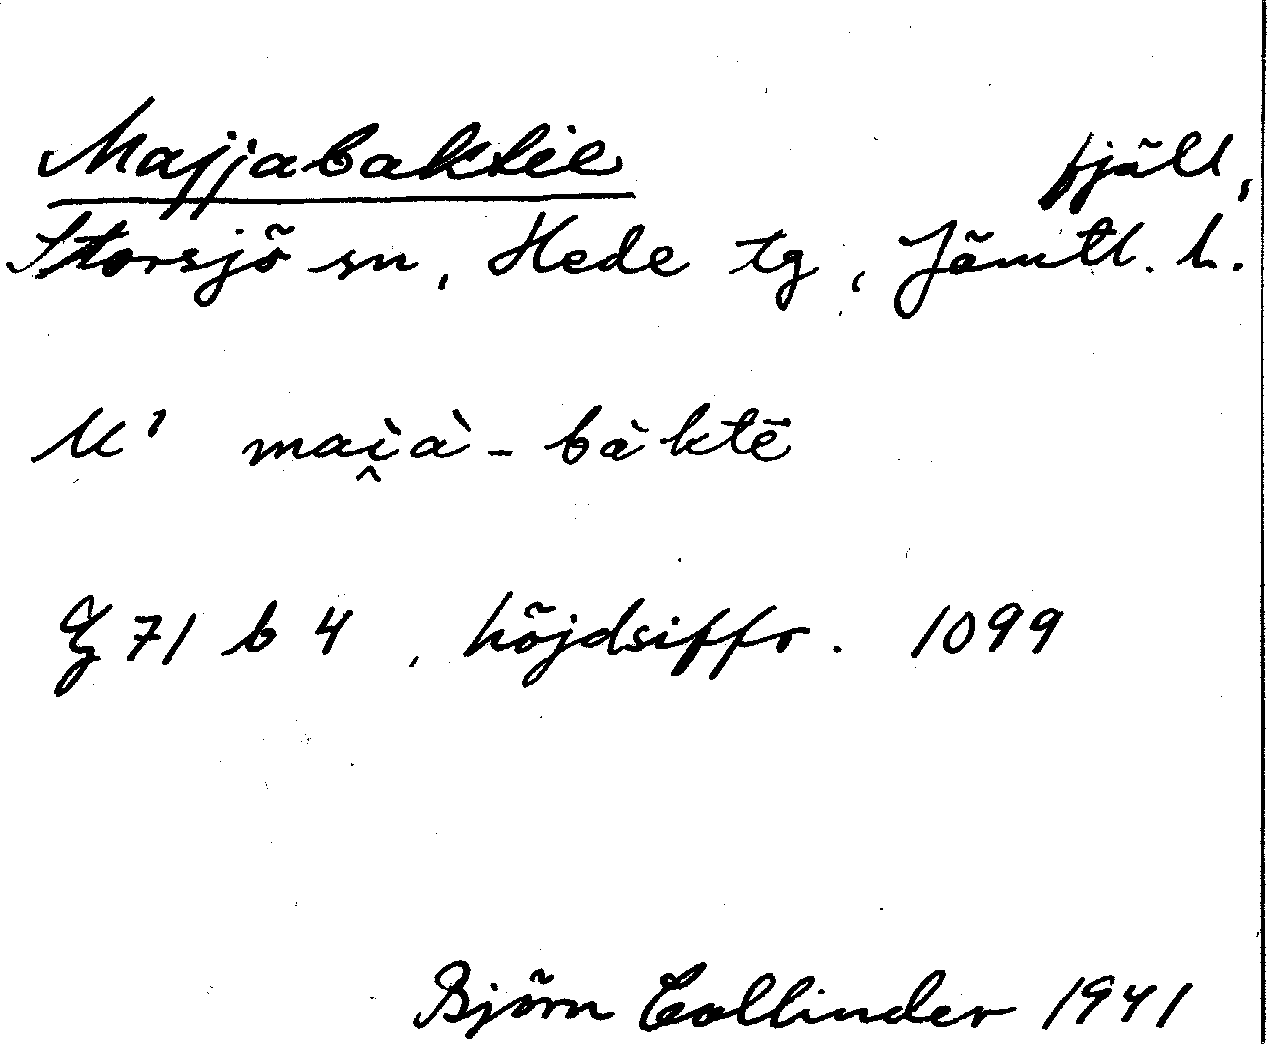 Majjabaktie fjäll,
Storsjö sn, Hede tg, Jämtl. l.
U' mai̭à-bàktē
Z 71 b 4, höjdsiffr. 1099
Björn Collinder 1941